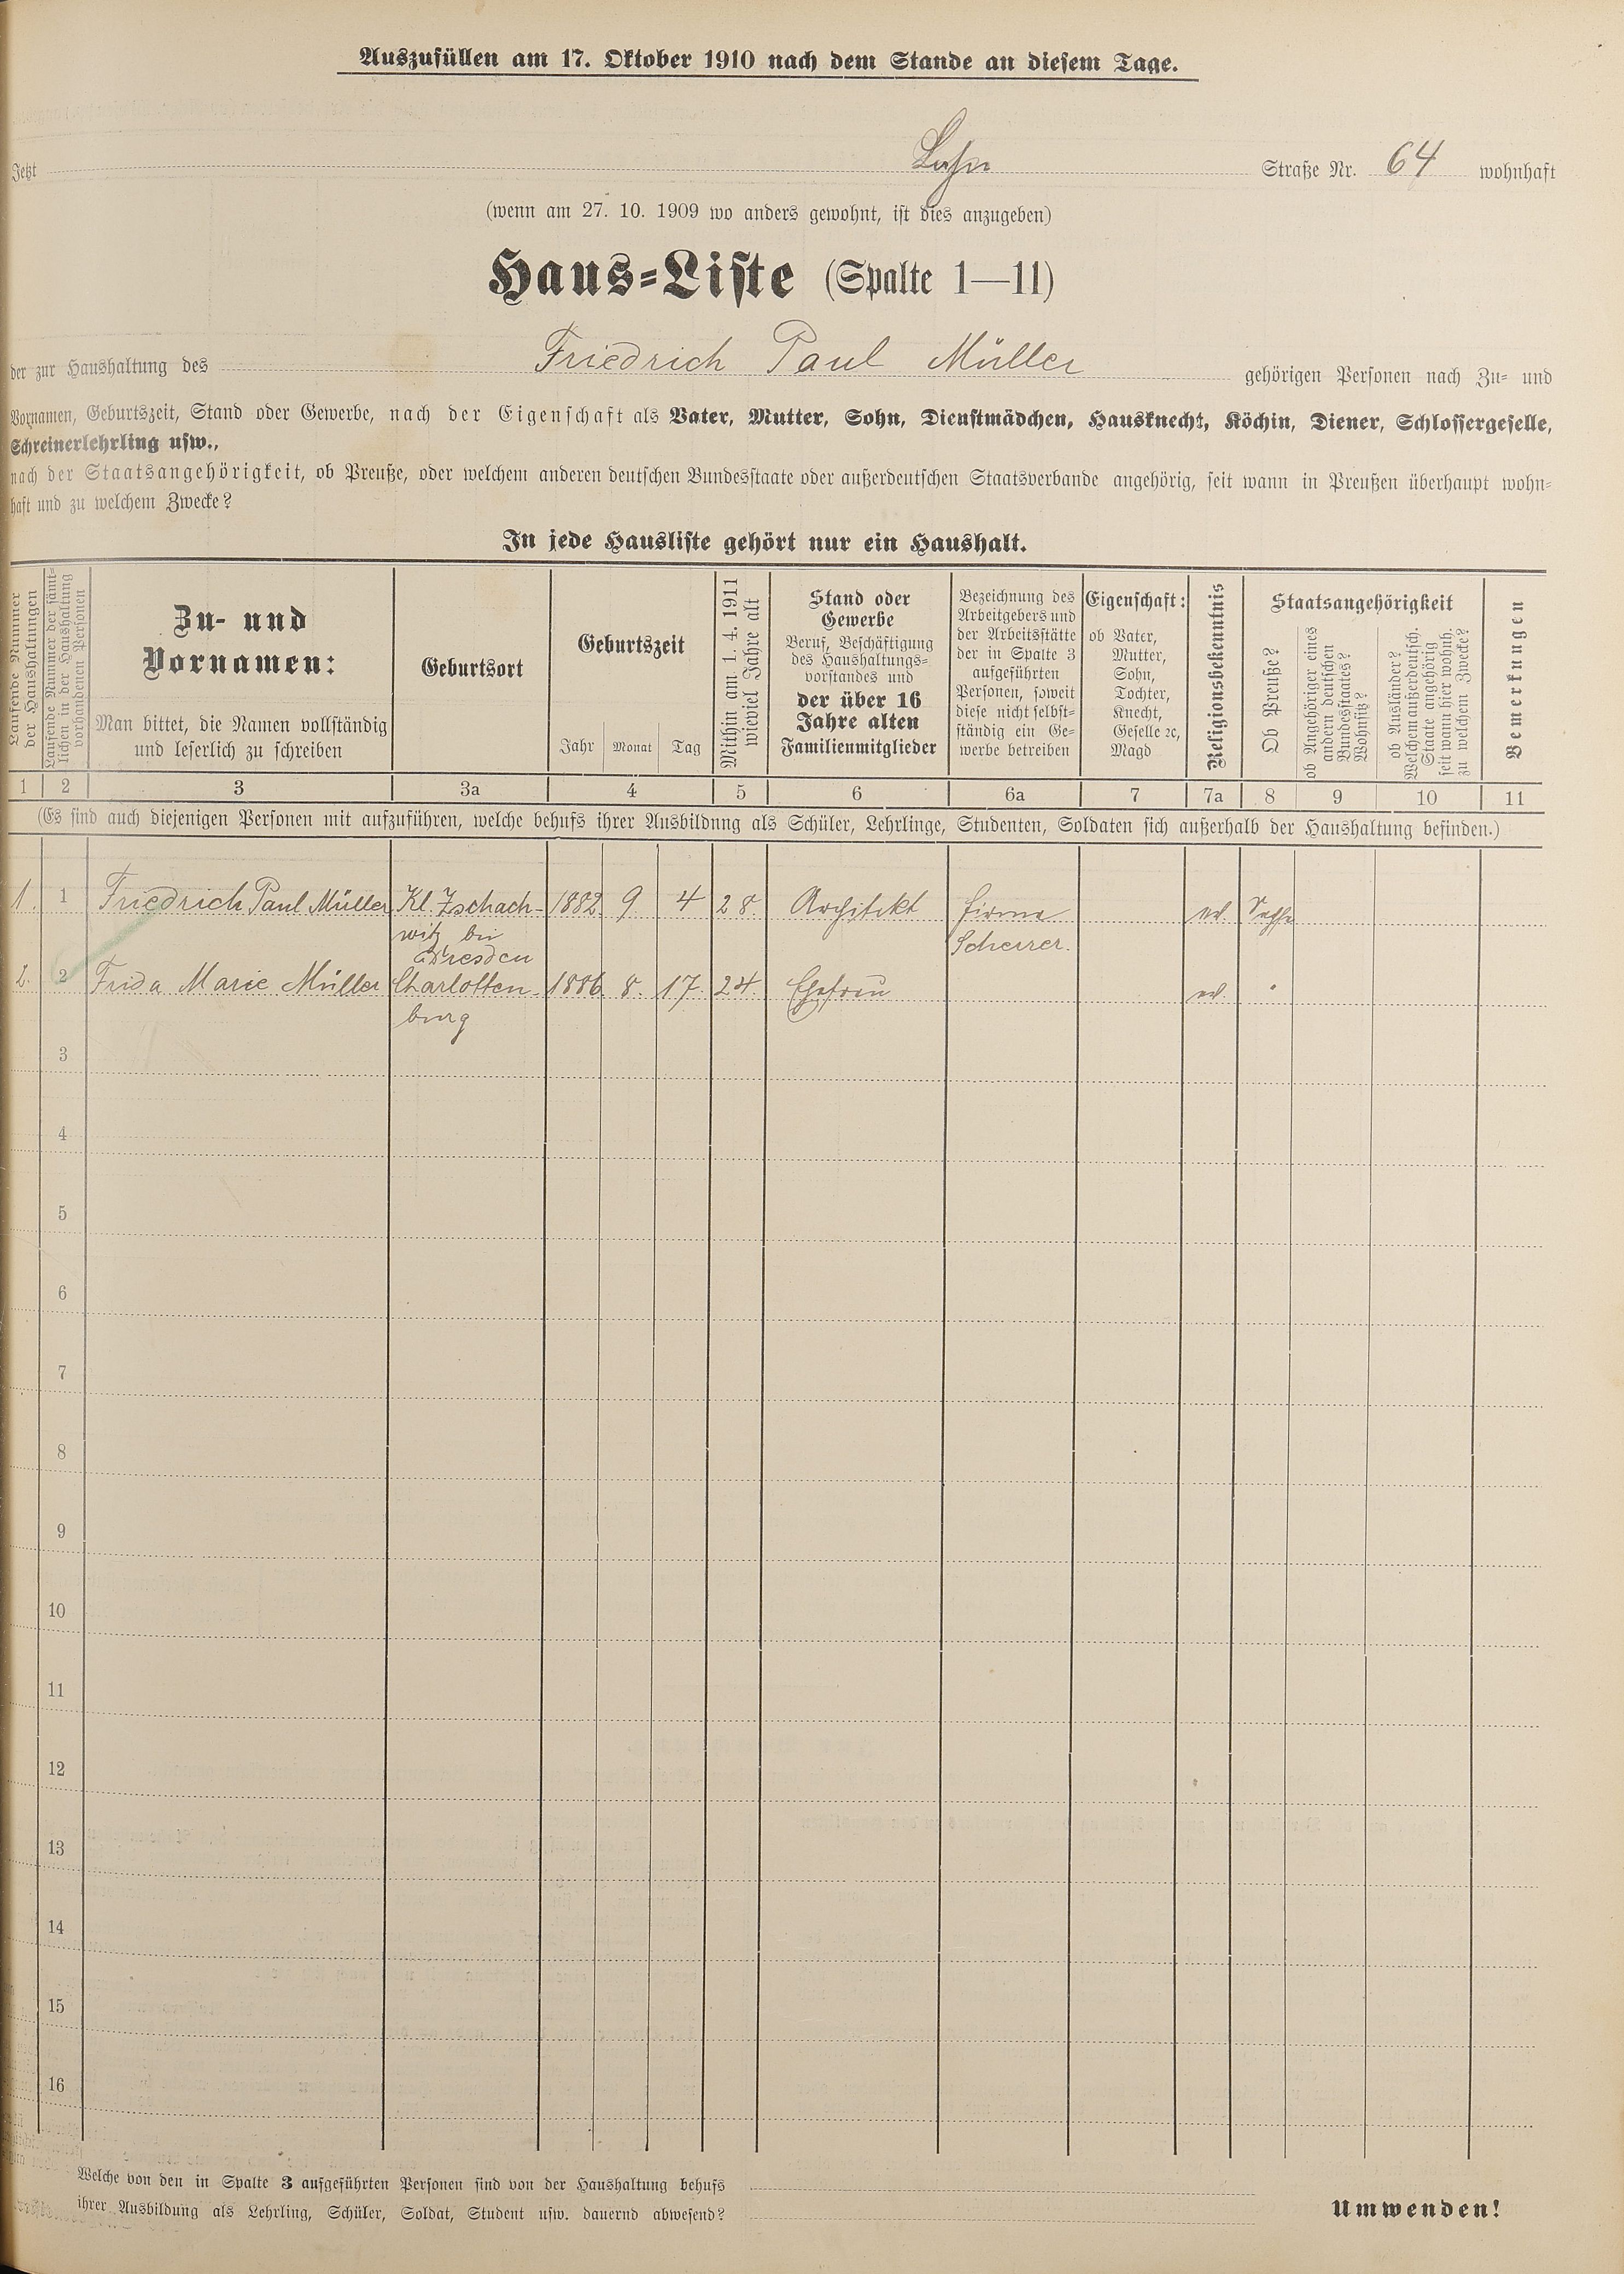 Auszufüllen am 17. Oktober 1910 nach dem Stande an diesem Tage.
Jetzt Straße Nr. 64 wohnhaft
(wenn am 27. 10. 1909 wo anders gewohnt, ist dies anzugeben)
Haus-Liste (Spalte 1—11)
der zur Haushaltung des Friedrich Paul Müller gehörigen Personen nach Zu- und
Vornamen, Geburtszeit, Stand oder Gewerbe, nach der Eigenschaft als Vater, Mutter, Sohn, Dienstmädchen, Hausknecht, Köchin, Diener, Schlossergeselle,
Schreinerlehrling usw.,
nach der Staatsangehörigkeit, ob Preuße, oder welchem anderen deutschen Bundesstaate oder außerdeutschen Staatsverbande angehörig, seit wann in Preußen überhaupt wohn-
haft und zu welchem Zwecke?
In jede Hausliste gehört nur ein Haushalt.
Laufende Nummer
der Haushaltungen
Laufende Nummer der sämt-
lichen in der Haushaltung
vorhandenen Personen
Zu- und
Vornamen:
Man bittet, die Namen vollständig
und leserlich zu schreiben
Geburtsort
Geburtszeit
Jahr Monat Tag
Mithin am 1. 4. 1911
wieviel Jahre alt
Stand oder
Gewerbe
Beruf, Beschäftigung
des Haushaltungs-
vorstandes und
der über 16
Jahre alten
Familienmitglieder
Bezeichnung des
Arbeitgebers und
der Arbeitsstätte
der in Spalte 3
aufgeführten
Personen, soweit
diese nicht selbst-
ständig ein Ge-
werbe betreiben
Eigenschaft:
ob Vater,
Mutter,
Sohn,
Tochter,
Knecht,
Geselle ꝛc,
Magd
Religionsbekenntnis
Staatsangehörigkeit
Ob Preuße?
ob Angehöriger eines
andern deutschen
Bundesstaates?
Wohnsitz?
ob Ausländer?
Welchem außerdeutsch.
Staate angehörig
seit wann hier wohnh.
zu welchem Zwecke?
Bemerkungen
1 2 3 3a 4 5 6 6a 7 7a 8 9 10 11
(Es sind auch diejenigen Personen mit aufzuführen, welche behufs ihrer Ausbildung als Schüler, Lehrlinge, Studenten, Soldaten sich außerhalb der Haushaltung befinden.)
1. 1 Friedrich Paul Müller Kl. Zschach- 1882 9. 4 28. Architekt Firma ev. Sachse
witz bei Scherrer.
Dresden
2. 2 Frida Marie Müller Charlotten- 1886 8. 17. 24. Ehefrau ev. "
burg
3
4
5
6
7
8
9
10
11
12
13
14
15
16
Welche von den in Spalte 3 aufgeführten Personen sind von der Haushaltung behufs
ihrer Ausbildung als Lehrling, Schüler, Soldat, Student usw. dauernd abwesend?
Umwenden!